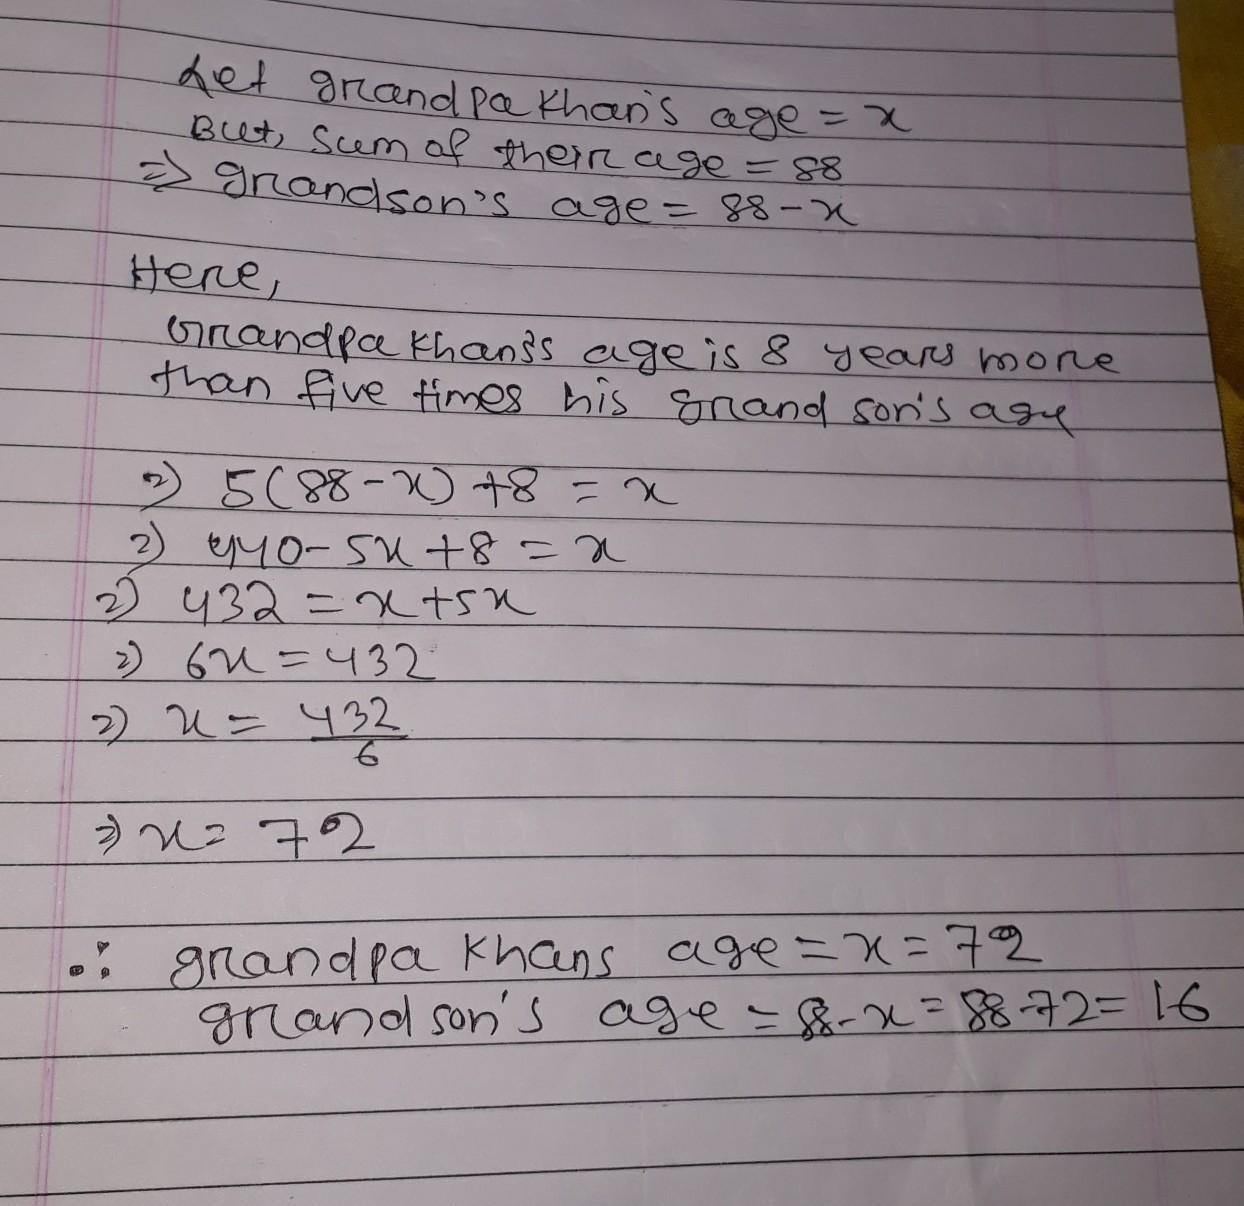 Let grandpa Khan's age = x
But, sum of their age = 88
⇒ grandson's age = 88-x
Here,
Grandpa Khan's age is 8 years more
than five times his grand son's age
⇒ 5(88-x) +8 = x
⇒ 440-5x+8 = x
⇒ 432 = x+5x
⇒ 6x = 432
⇒ x = 432/6
⇒ x = 72
∴ grandpa Khans age = x = 72
grand son's age = 88-x = 88-72 = 16